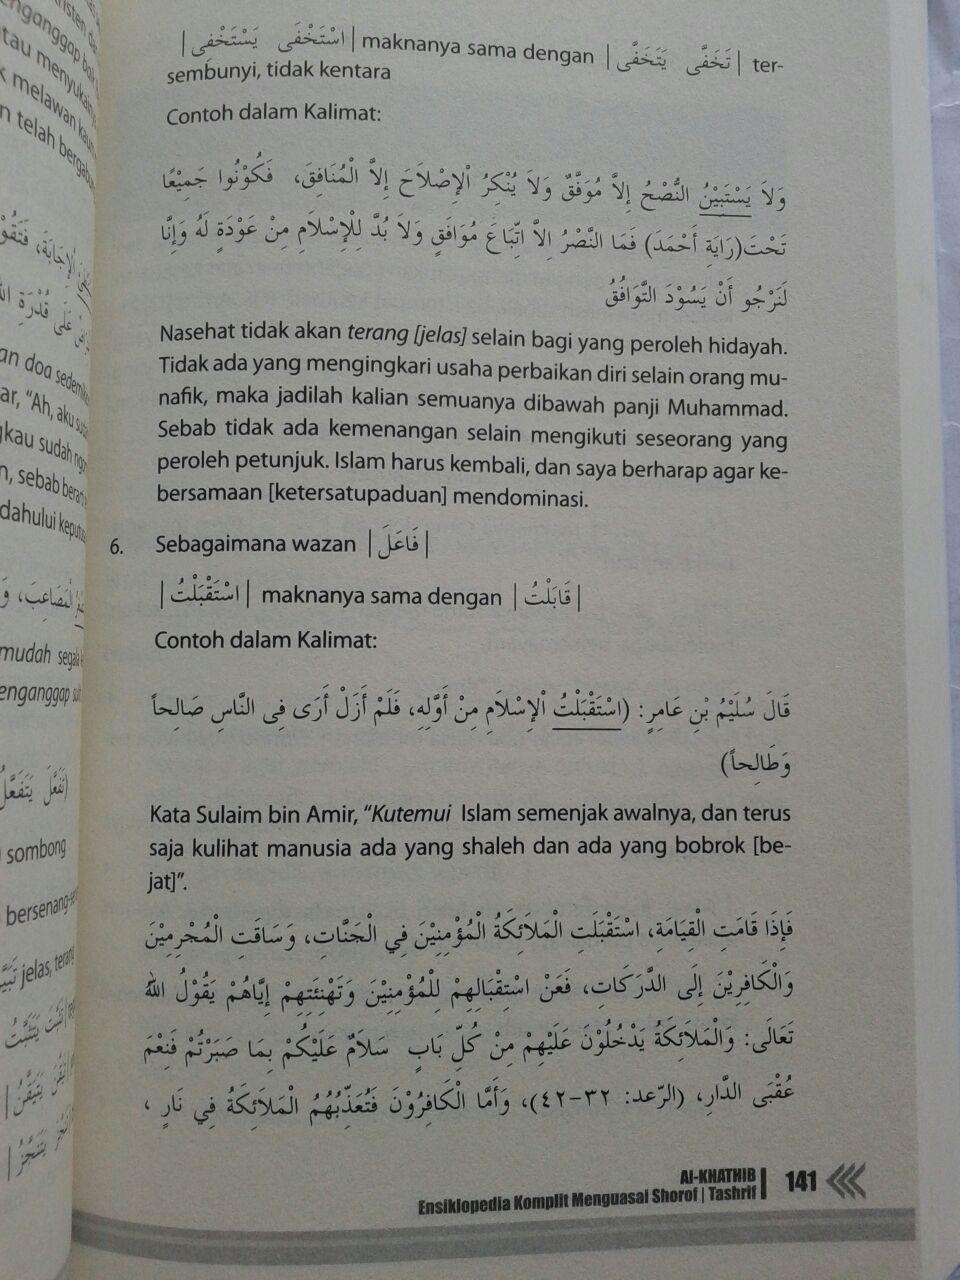 | اسْتَخْفَى يَسْتَخْفِى | maknanya sama dengan | تَخَفَّى يَتَخَفَّى | ter-
sembunyi, tidak kentara
Contoh dalam Kalimat:
وَلاَ يَسْتَبِيْنُ النُّصْحُ إِلاَّ مُوَفَّقٌ وَلاَ يُنْكِرُ اْلإِصْلاَحَ إِلاَّ الْمُنَافِقَ، فَكُوْنُوا جَمِيْعًا
تَحْتَ(رَايَةِ أَحْمَدَ) فَمَا النَّصْرُ اِلاَّ اتِّبَاعَ مُوَافَقٍ وَلاَ بُدَّ لِلْإِسْلاَمِ مِنْ عَوْدَةٍ لَهُ وَإِنَّا
لَنَرْجُو أَنْ يَسُوْدَ التَّوَافُقُ
Nasehat tidak akan terang [jelas] selain bagi yang peroleh hidayah.
Tidak ada yang mengingkari usaha perbaikan diri selain orang mu-
nafik, maka jadilah kalian semuanya dibawah panji Muhammad.
Sebab tidak ada kemenangan selain mengikuti seseorang yang
peroleh petunjuk. Islam harus kembali, dan saya berharap agar ke-
bersamaan [ketersatupaduan] mendominasi.
6. Sebagaimana wazan | فَاعَلَ |
| اسْتَقْبَلْتُ | maknanya sama dengan | قَابَلْتُ |
Contoh dalam Kalimat:
قَالَ سُلَيْمُ بْنِ عَامِرٍ: (اسْتَقْبَلْتُ اْلإِسْلاَمِ مِنْ أَوَّلِهِ، فَلَمْ أَزَلْ أَرَى فِى النَّاسِ صَالِحاً
وَطَالِحاً)
Kata Sulaim bin Amir, “Kutemui Islam semenjak awalnya, dan terus
saja kulihat manusia ada yang shaleh dan ada yang bobrok [be-
jat]”.
فَإِذَا قَامَتِ الْقِيَامَةِ، اسْتَقْبَلَتِ الْمَلاَئِكَةُ الْمُؤْمِنِيْنَ فِي الْجَنَّاتِ، وَسَاقَتِ الْمُجْرِمِيْنَ
وَالْكَافِرِيْنَ إِلَى الدَّرَكَاتِ، فَعَنْ اسْتِقْبَالِهِمْ لِلْمُؤْمِنِيْنَ وَتَهْنِئَتِهِمْ إِيَّاهُمْ يَقُوْلُ اللهُ
تَعَالَى: وَالْمَلاَئِكَةُ يَدْخُلُوْنَ عَلَيْهِمْ مِنْ كُلِّ بَابٍ سَلاَمٌ عَلَيْكُمْ بِمَا صَبَرْتُمْ فَنِعْمَ
عُقْبَى الدَّارِ، (الرّعد: ٣٢-٤٢)، وَأَمَّا الْكَافِرُوْنَ فَتُعَذِّبُهُمُ الْمَلاَئِكَةُ فِي نَارٍ ،
Al-KHATHIB
Ensiklopedia Komplit Menguasai Shorof | Tashrif
141